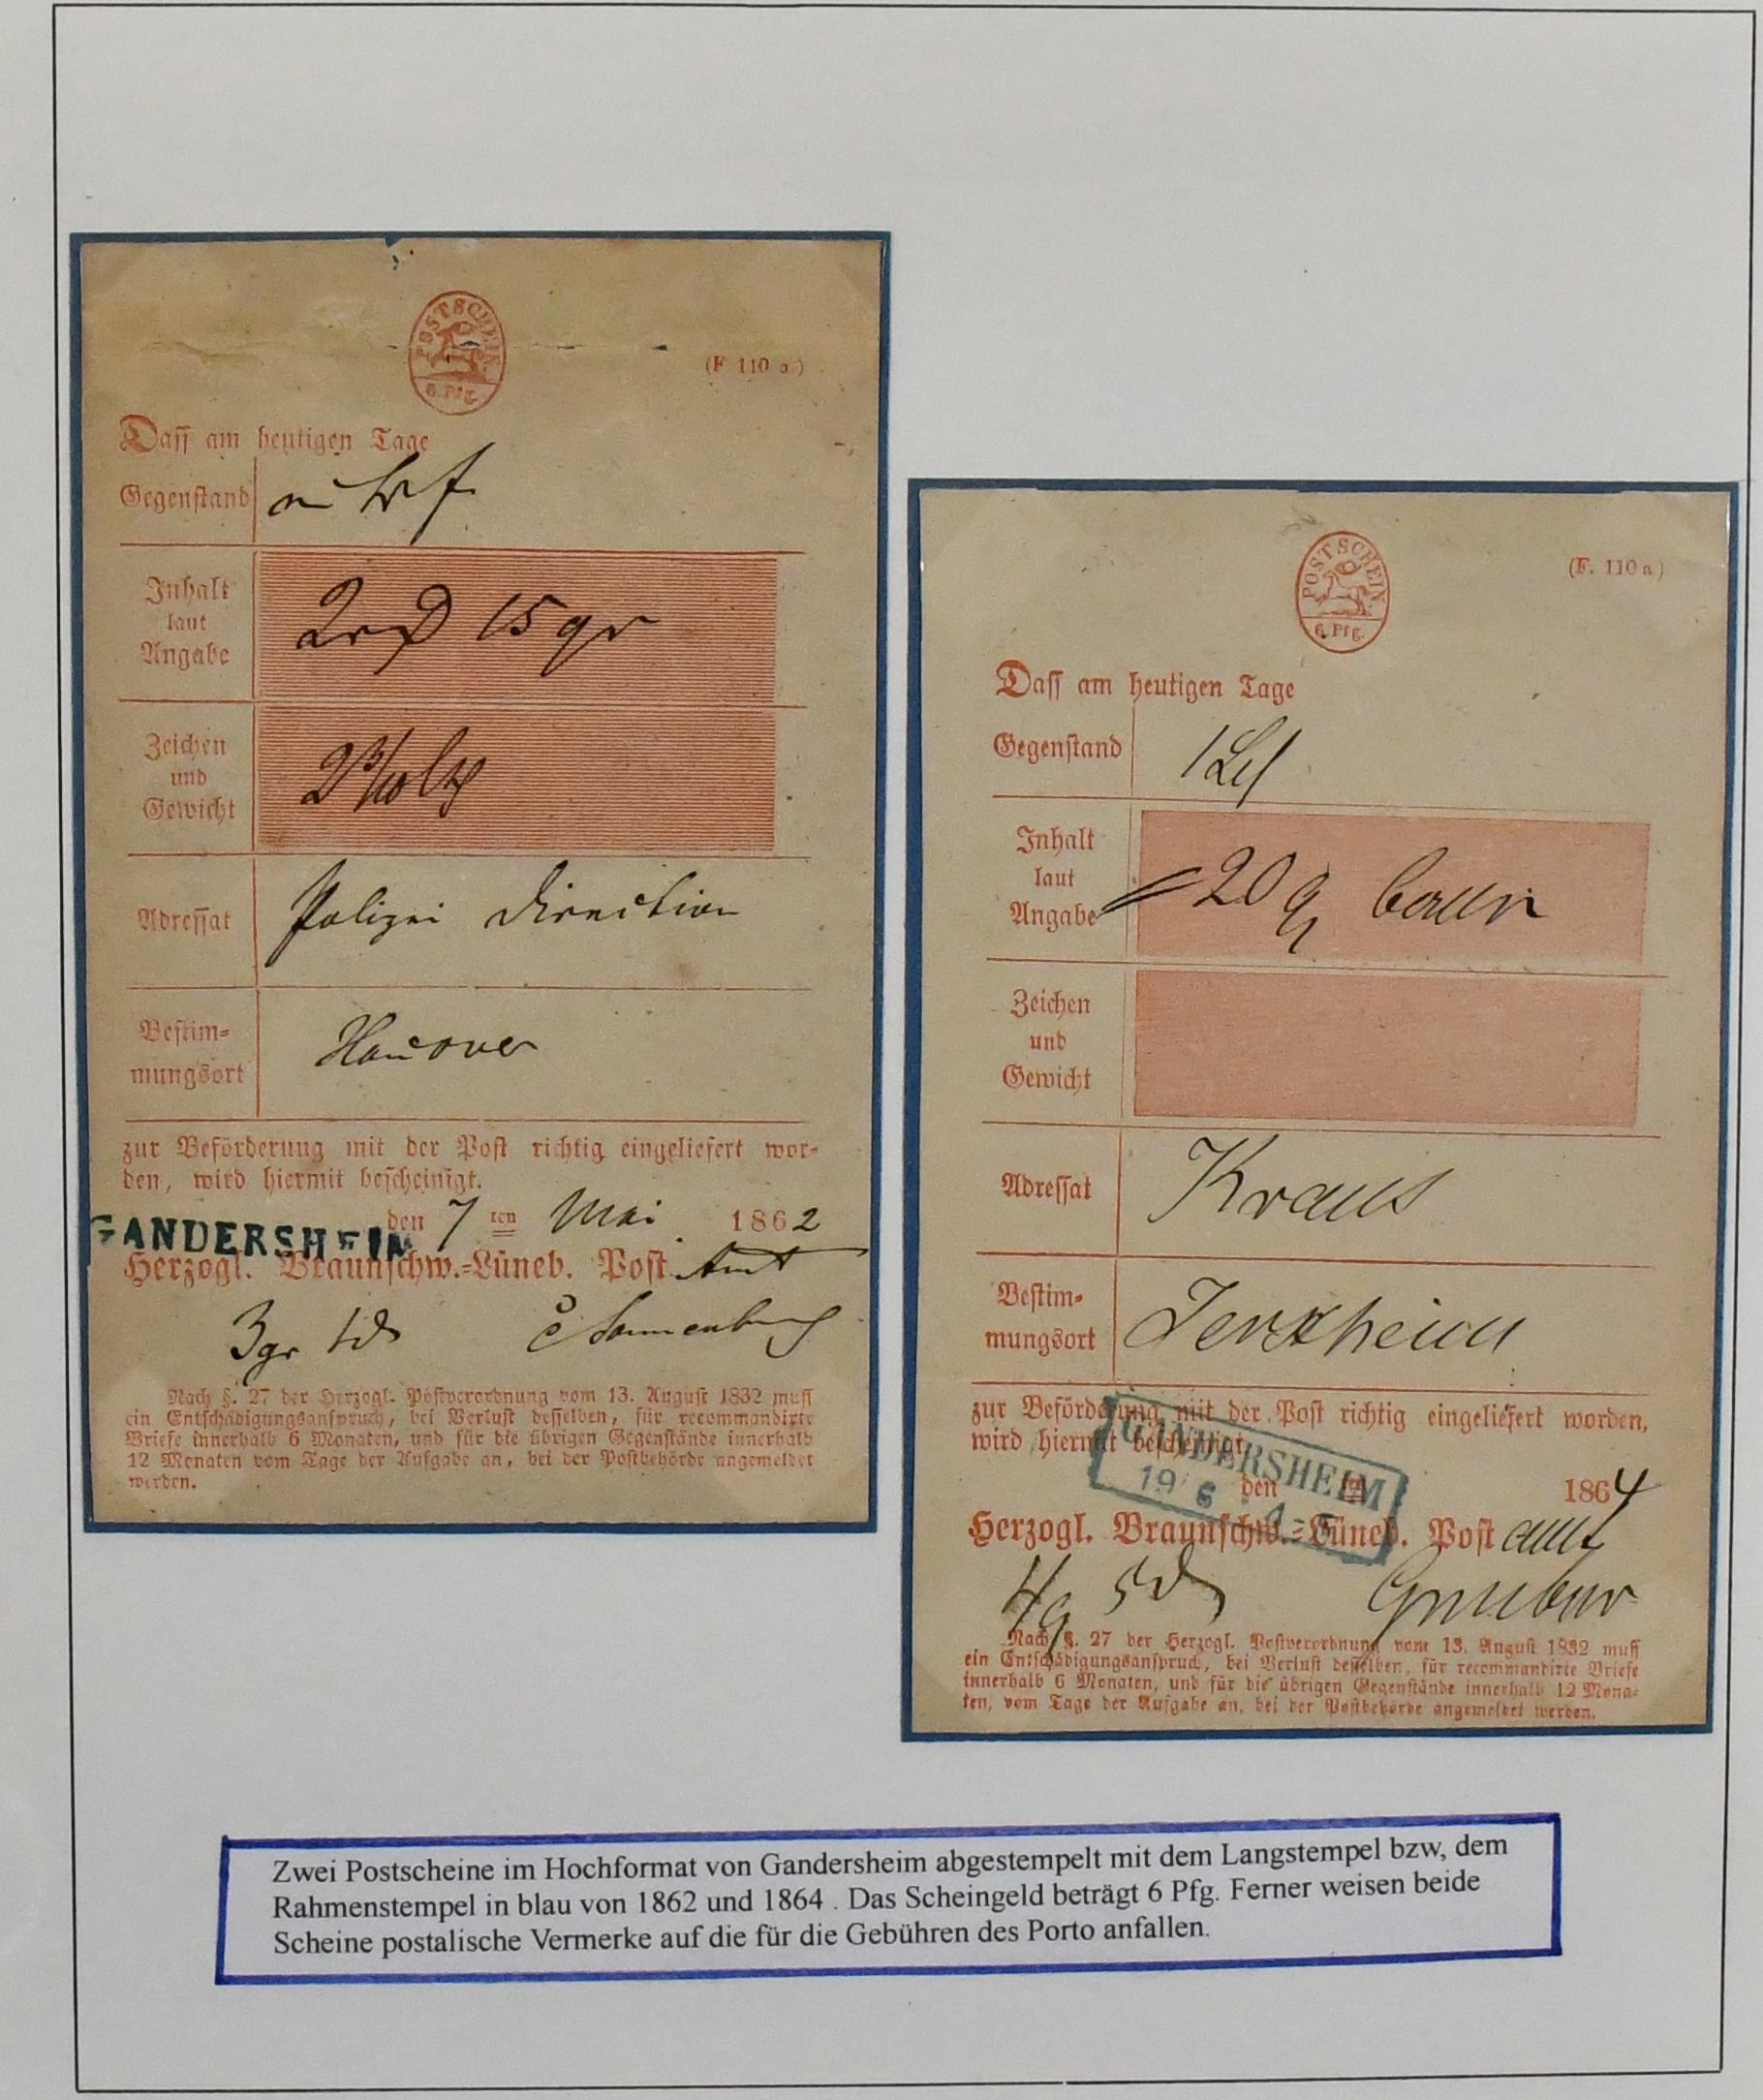 POSTSCHEIN
6. Pfg.
(F. 110 a.)
Daſſ am heutigen Tage
Gegenſtand
Inhalt
laut
Angabe
15 gr
Zeichen
und
Gewicht
Adreſſat
Polizei Direction
Beſtim-
mungsort
Hanover
zur Beförderung mit der Poſt richtig eingeliefert wor-
den, wird hiermit beſcheinigt.
den 7 ten Mai 1862
GANDERSHEIM
Herzogl. Braunſchw.-Lüneb. Poſt Amt
3 gr
Nach §. 27 der Herzogl. Poſtverordnung vom 13. Auguſt 1832 muſſ
ein Entſchädigungsanſpruch, bei Verluſt deſſelben, für recommandirte
Briefe innerhalb 6 Monaten, und für die übrigen Gegenſtände innerhalb
12 Monaten vom Tage der Aufgabe an, bei der Poſtbehörde angemeldet
werden.
POSTSCHEIN
6. Pfg.
(F. 110 a)
Daſſ am heutigen Tage
Gegenſtand
Inhalt
laut
Angabe
20
Zeichen
und
Gewicht
Adreſſat
Kraus
Beſtim-
mungsort
Jerxheim
zur Beförderung mit der Poſt richtig eingeliefert worden,
wird hiermit beſcheinigt,
GANDERSHEIM
19 6
den ten 1864
Herzogl. Braunſchw.-Lüneb. Poſt amt
Nach §. 27 der Herzogl. Poſtverordnung vom 13. Auguſt 1832 muſſ
ein Entſchädigungsanſpruch, bei Verluſt deſſelben, für recommandirte Briefe
innerhalb 6 Monaten, und für die übrigen Gegenſtände innerhalb 12 Mona-
ten, vom Tage der Aufgabe an, bei der Poſtbehörde angemeldet werden.
Zwei Postscheine im Hochformat von Gandersheim abgestempelt mit dem Langstempel bzw, dem
Rahmenstempel in blau von 1862 und 1864 . Das Scheingeld beträgt 6 Pfg. Ferner weisen beide
Scheine postalische Vermerke auf die für die Gebühren des Porto anfallen.